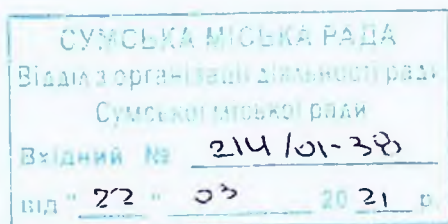 СУМСЬКА МІСЬКА РАДА
Відділ з організації діяльності ради
Сумської міської ради
Вхідний № 214/01-38
від " 22 " 03 20 21 р.